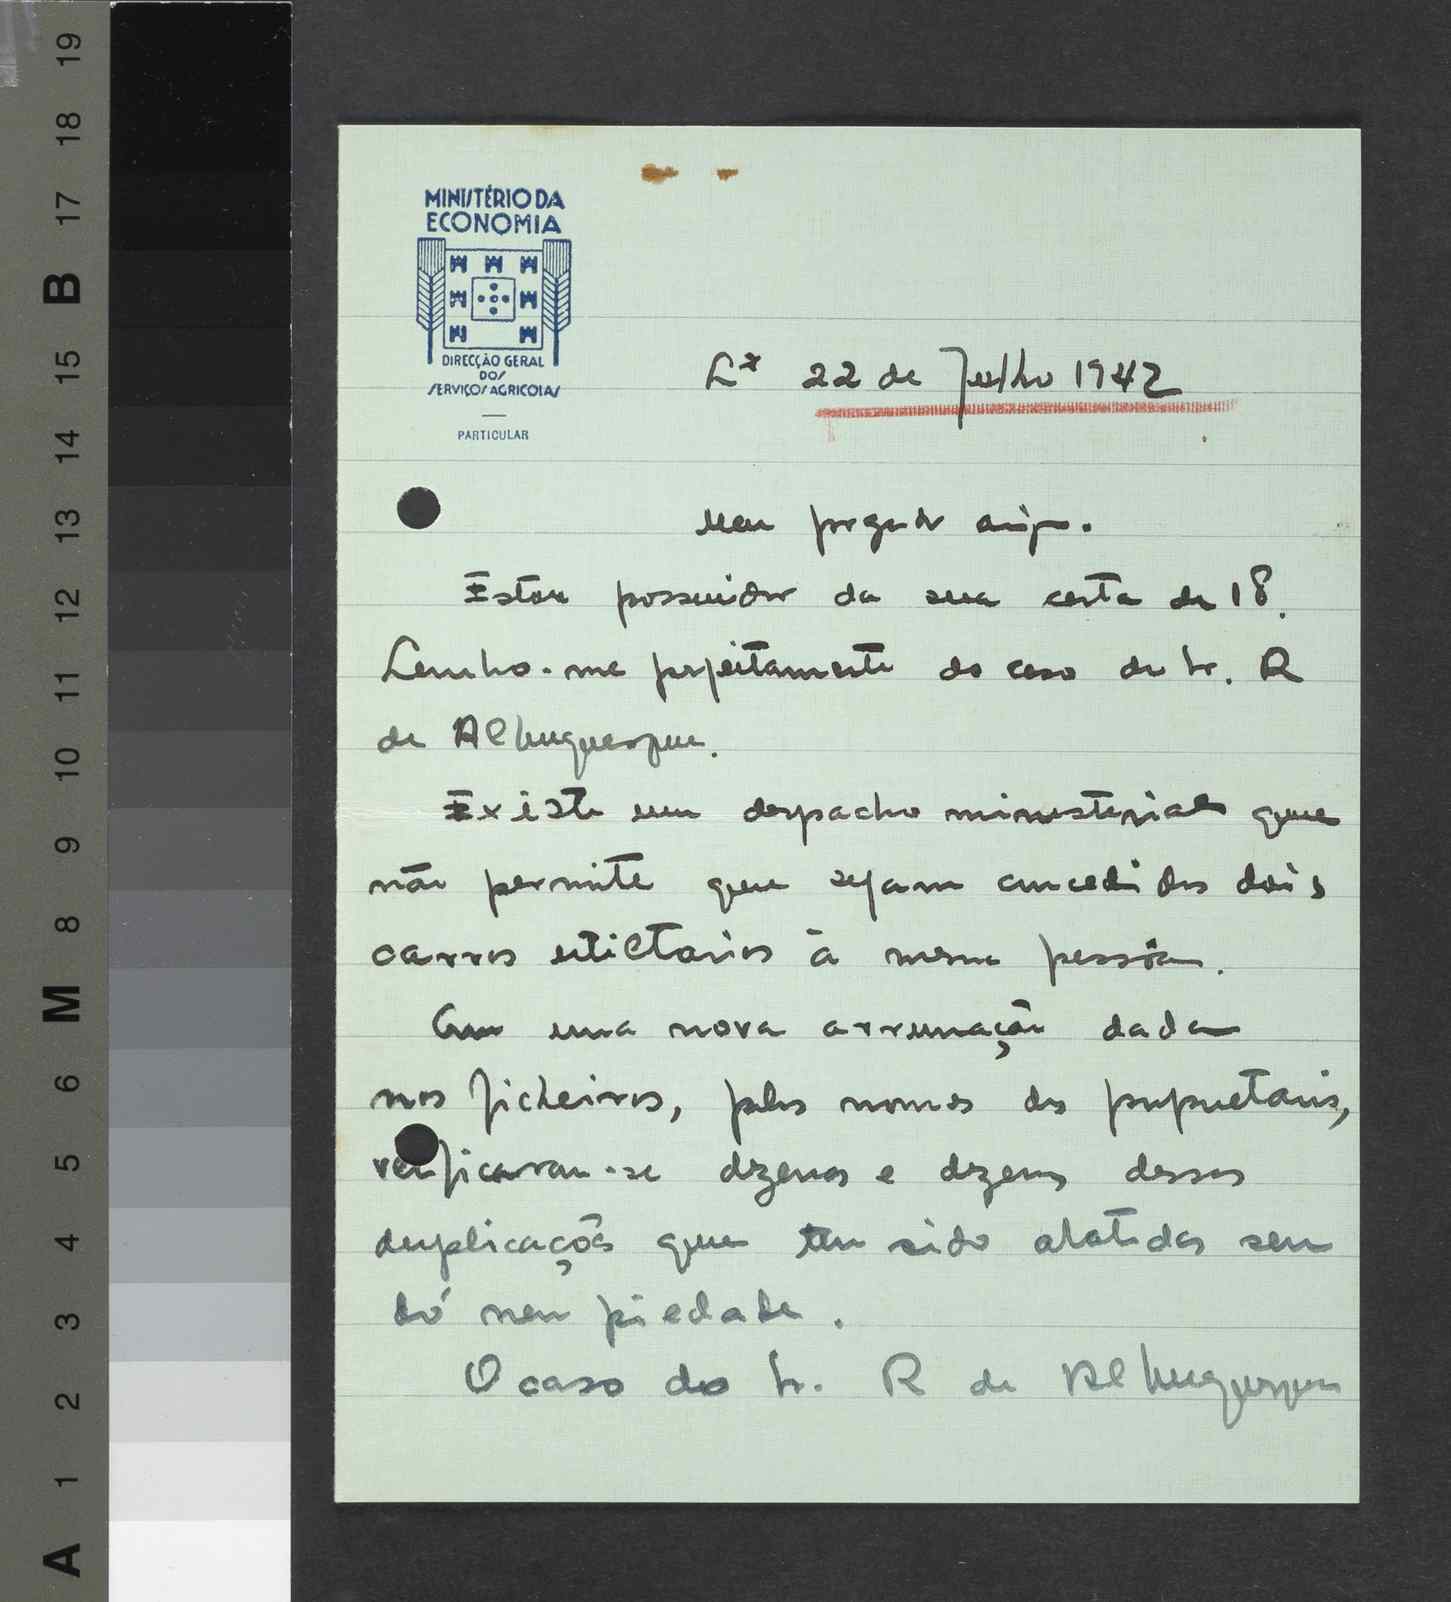 MINISTÉRIO DA
ECONOMIA
DIRECÇÃO GERAL
DOS
SERVIÇOS AGRICOLAS
PARTICULAR
Lx 22 de Julho 1942
Meu prezado amigo.
Estou possuidor da sua carta de 18.
Lembro-me perfeitamente do caso do Sr. R
de Albuquerque.
Existe um despacho ministerial que
não permite que sejam concedidos dois
carros utilitarios à mesma pessôa.
Com uma nova arrumação dada
nos ficheiros, pelos nomes dos proprietarios,
verificaram-se dezenas e dezenas dessas
duplicações que tem sido abatidas sem
dó nem piedade.
O caso do Sr. R de Albuquerque
19
18
17
B
15
14
13
12
11
10
9
8
M
6
5
4
3
2
1
A